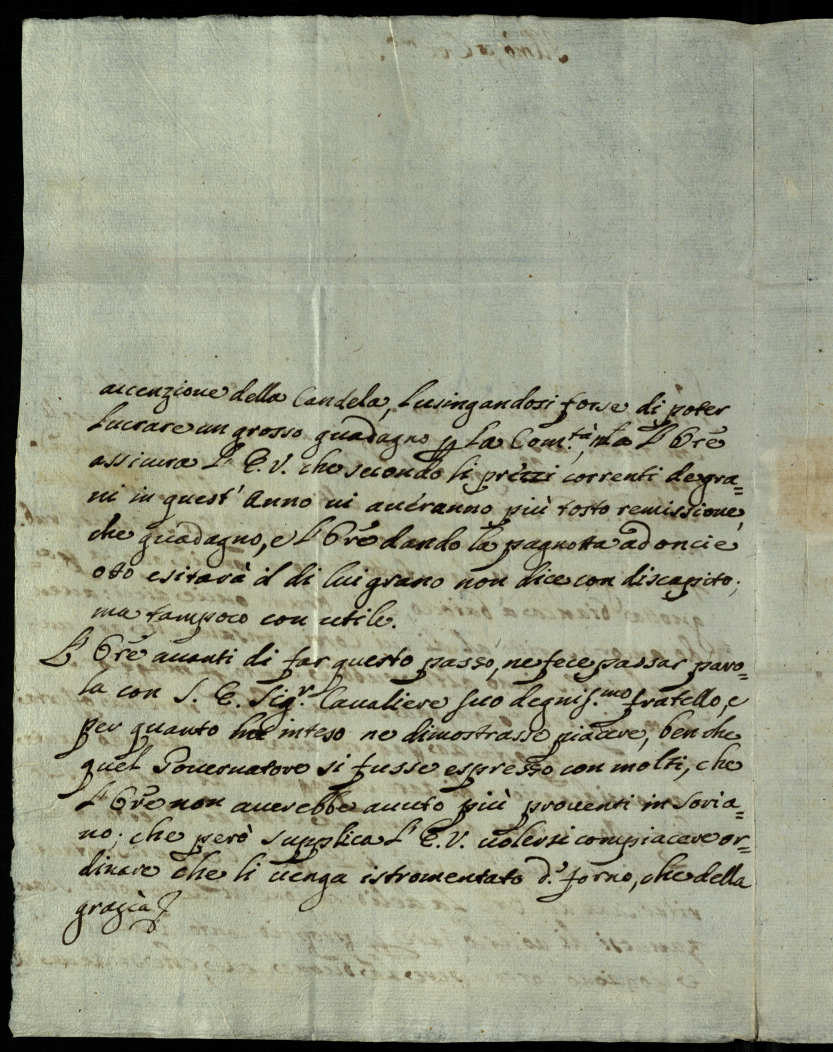 accenzione della Candela, Lusingandosi forse di poter
Lucrare un grosso guadagno p la Com.tà, ma L'Ore
assicura L'E.V. che secondo li prezzi correnti de gra=
ni in quest'Anno vi averanno più tosto remissione,
che guadagno, e L'Ore dando la pagnotta ad oncie
otto esitarà il di lui grano non dice con discapito;
ma tampoco con utile.
L'Ore avanti di far questo passo, ne fece passar paro=
la con S. E. Sig.r Cavaliere suo degnis.mo fratello, e
per quanto ha inteso ne dimostrasse piacere, ben che
quel Governatore si fusse espresso con molti, che
L'Ore non averebbe avuto più proventi in Soria=
no; che però supplica L'E.V. volersi compiacere or=
dinare che li venga istromentato d.o forno, che della
grazia